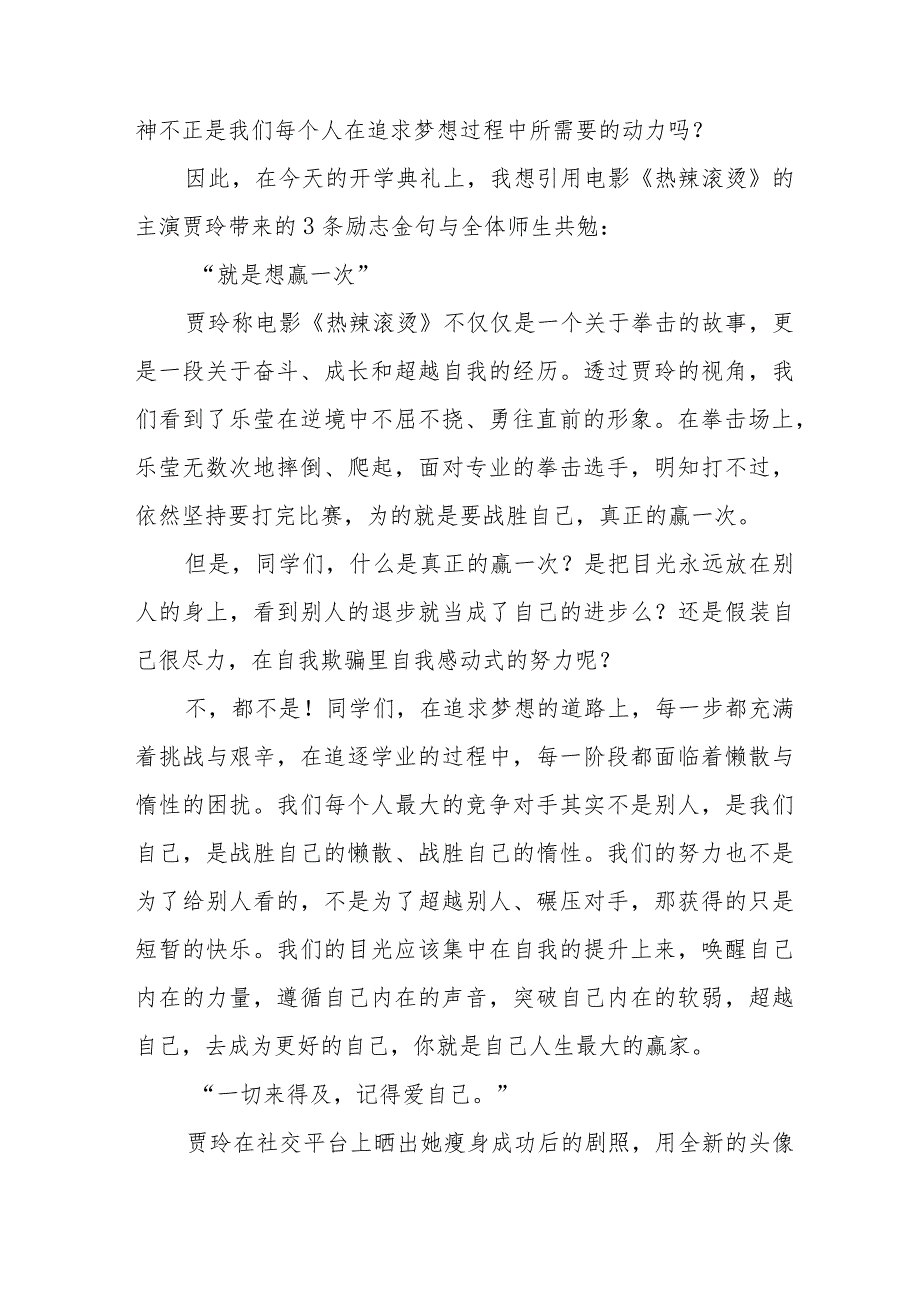 神不正是我们每个人在追求梦想过程中所需要的动力吗？
因此，在今天的开学典礼上，我想引用电影《热辣滚烫》的
主演贾玲带来的 3 条励志金句与全体师生共勉：
“就是想赢一次”
贾玲称电影《热辣滚烫》不仅仅是一个关于拳击的故事，更
是一段关于奋斗、成长和超越自我的经历。透过贾玲的视角，我
们看到了乐莹在逆境中不屈不挠、勇往直前的形象。在拳击场上，
乐莹无数次地摔倒、爬起，面对专业的拳击选手，明知打不过，
依然坚持要打完比赛，为的就是要战胜自己，真正的赢一次。
但是，同学们，什么是真正的赢一次？是把目光永远放在别
人的身上，看到别人的退步就当成了自己的进步么？还是假装自
己很尽力，在自我欺骗里自我感动式的努力呢？
不，都不是！同学们，在追求梦想的道路上，每一步都充满
着挑战与艰辛，在追逐学业的过程中，每一阶段都面临着懒散与
惰性的困扰。我们每个人最大的竞争对手其实不是别人，是我们
自己，是战胜自己的懒散、战胜自己的惰性。我们的努力也不是
为了给别人看的，不是为了超越别人、碾压对手，那获得的只是
短暂的快乐。我们的目光应该集中在自我的提升上来，唤醒自己
内在的力量，遵循自己内在的声音，突破自己内在的软弱，超越
自己，去成为更好的自己，你就是自己人生最大的赢家。
“一切来得及，记得爱自己。”
贾玲在社交平台上晒出她瘦身成功后的剧照，用全新的头像